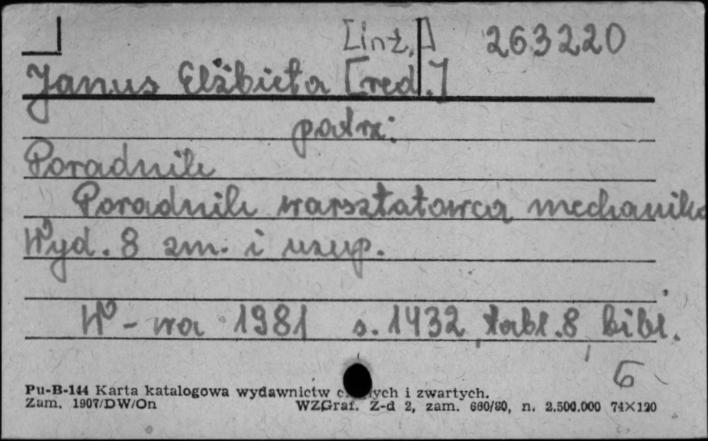 [inż.] 263220
Janus Elżbieta [red.]
patrz:
Poradnik
Poradnik warsztatowca mechanika
Wyd. 8 zm. i uzup.
W-wa 1981 s. 1432, tabl. 8, bibl.
6
Pu-B-144 Karta katalogowa wydawnictw i zwartych.
Zam. 1907/DW/On WZGraf. Z-d 2, zam. 660/80, n. 2.500.000 74×120